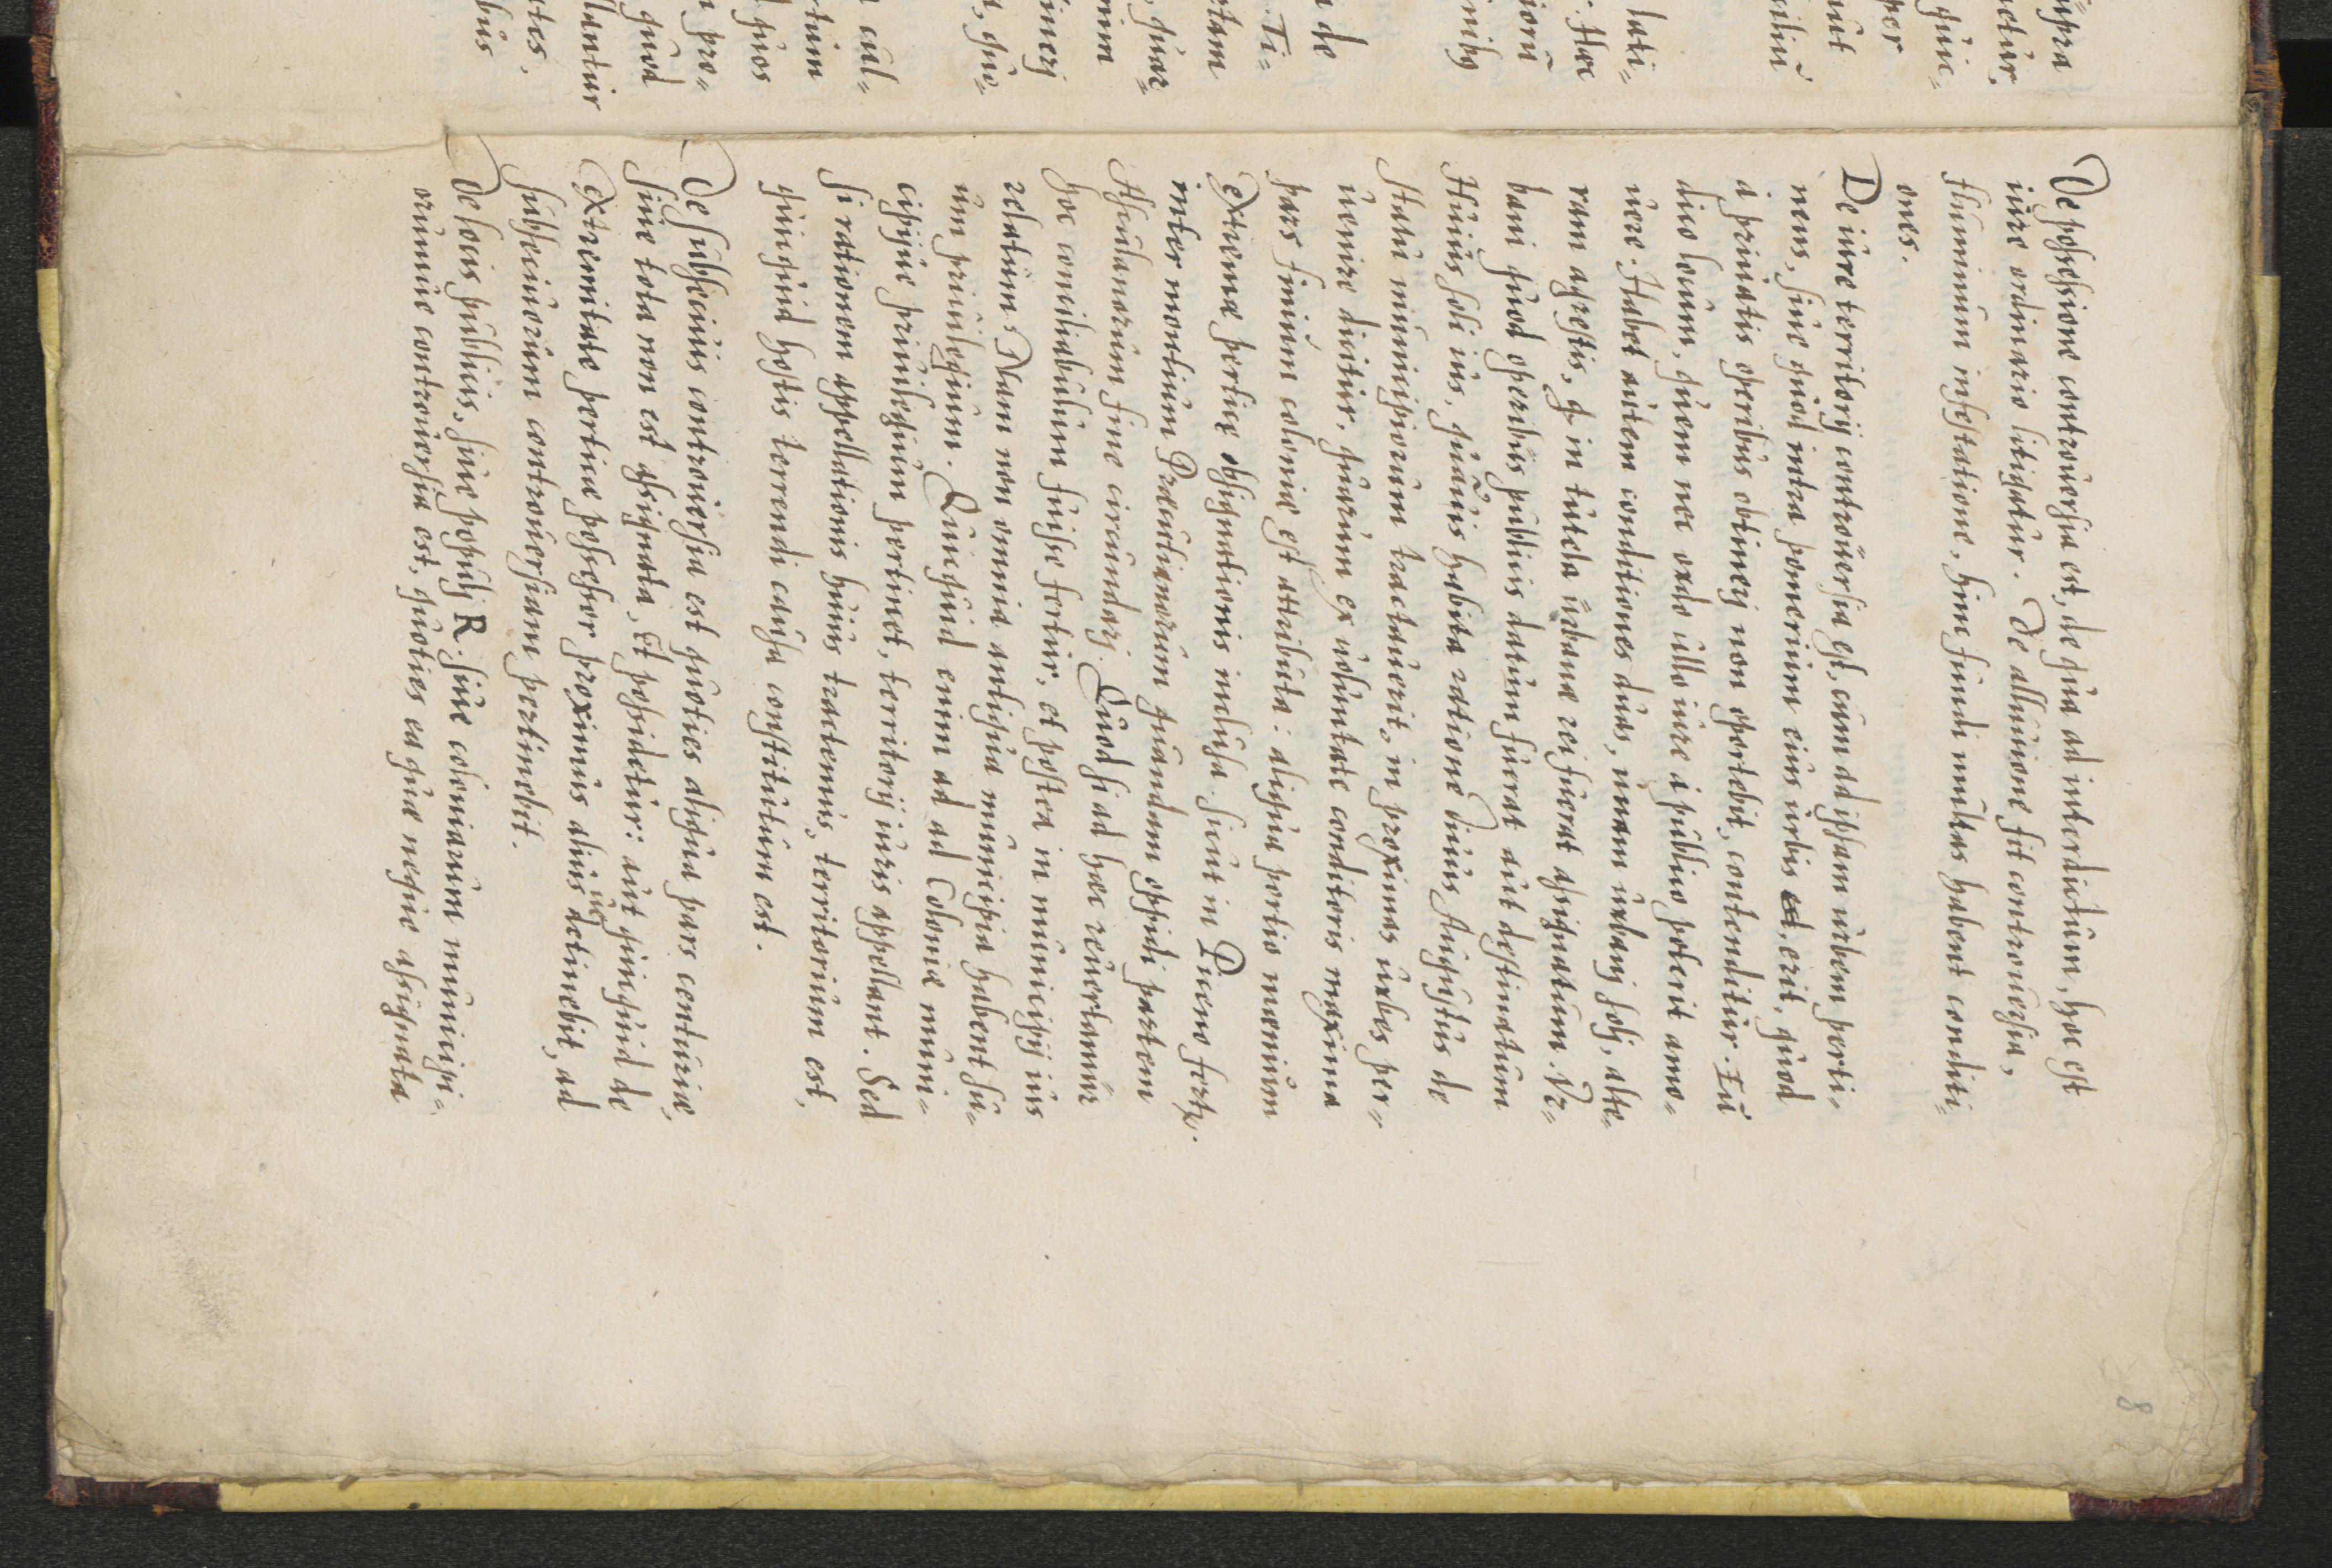 De possessione controuersia est, de qua ad interdictum, hoc est
iure ordinario litigatur. De alluuione fit controuersia,
fluminum infestatione, hinc fundi multas habent conditi=
ones.
De iure territorij controuersia est, cum ad ipsam urbem perti=
nens, siue quod intra pomerium eius urbis est, erit, quod
à priuatis operibus obtinerj non oportebit, contenditur. Eũ
dico locum, quem nec ordo ullo iure à publico poterit amo=
uere. Habet autem conditiones duas, unam urbanj solj, alte=
ram agrestis, q in tutela urbanæ rei fuerat assignatum. Vr=
bani quod operibus publicis datum fuerat aut destinatum
Huius soli ius, quãuis habita ratione diuus Augustus de
statu municipiorum tractauerit, in proximas urbes per=
uenire dicitur, quarum ex uoluntate conditoris maxima
pars finium coloniæ est attributa: aliqua portio mænium
extremæ perticæ assignationis inclusa. sicut in Piceno fertr.
inter montium Præcutianorum quandam oppidi partem
Asculanorum fine circundarj. Quod si ad hæc reuertamur
hoc conciliabulum fuisse fertur, et postea in municipij ius
relatum. Nam non omnia antiqua municipia habent su=
um priuilegium. Quicquid enim ad ad Coloniæ muni=
cipijue priuilegium pertinet, territorij iuris appellant. Sed
si rationem appellationis huius tractemus, territorium est,
quicquid hostis terrendi causa constitutum est.
De subseciuis controuersia est quoties aliqua pars centuriæ,
siue tota non est assignata, et possidetur: aut quicquid de
extremitate perticæ possessor proximus aliusue detinebit, ad
subseciuorum controuersiam pertinebit.
De locis publicis, siue populj R. siue coloniarum municipi=
orumue controuersia est, quoties ea quæ neque assignata
8